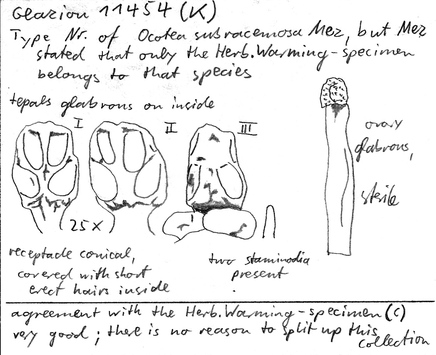 Glaziou 11454 (K)
Type Nr. of Ocotea subracemosa Mez, but Mez
stated that only the Herb. Warming-specimen
belongs to that species
tepals glabrous on inside
I II III
ovary
glabrous,
sterile
(25x)
receptacle conical,
covered with short
erect hairs inside
two staminodia
present
agreement with the Herb. Warming-specimen (C)
very good; there is no reason to split up this
collection